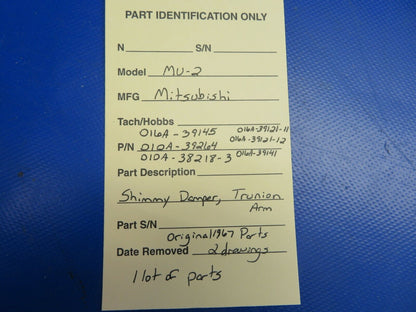 PART IDENTIFICATION ONLY
N S/N
Model MU-2
MFG Mitsubishi
Tach/Hobbs
016A-39145 016A-39121-11
016A-39121-12
P/N 010A-39264
010A-38218-3 016A-39141
Part Description
Shimmy Damper, Trunion
Arm
Part S/N
Original 1967 Parts
Date Removed 2 drawings
1 lot of parts